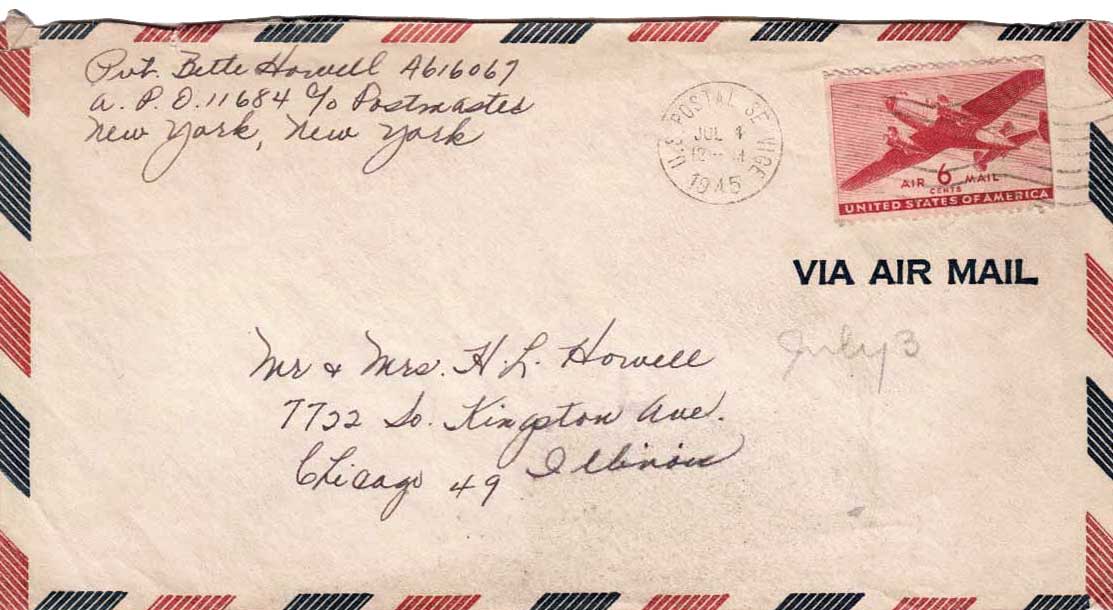 Pvt. Bette Howell A616067
A. P. O. 11684 c/o Postmaster
New York, New York
U.S. POSTAL SERVICE
JUL 4
1945
AIR 6 MAIL
CENTS
UNITED STATES OF AMERICA
VIA AIR MAIL
July 3
Mr & Mrs. H. L. Howell
7722 So. Kingston Ave.
Chicago 49 Illinois